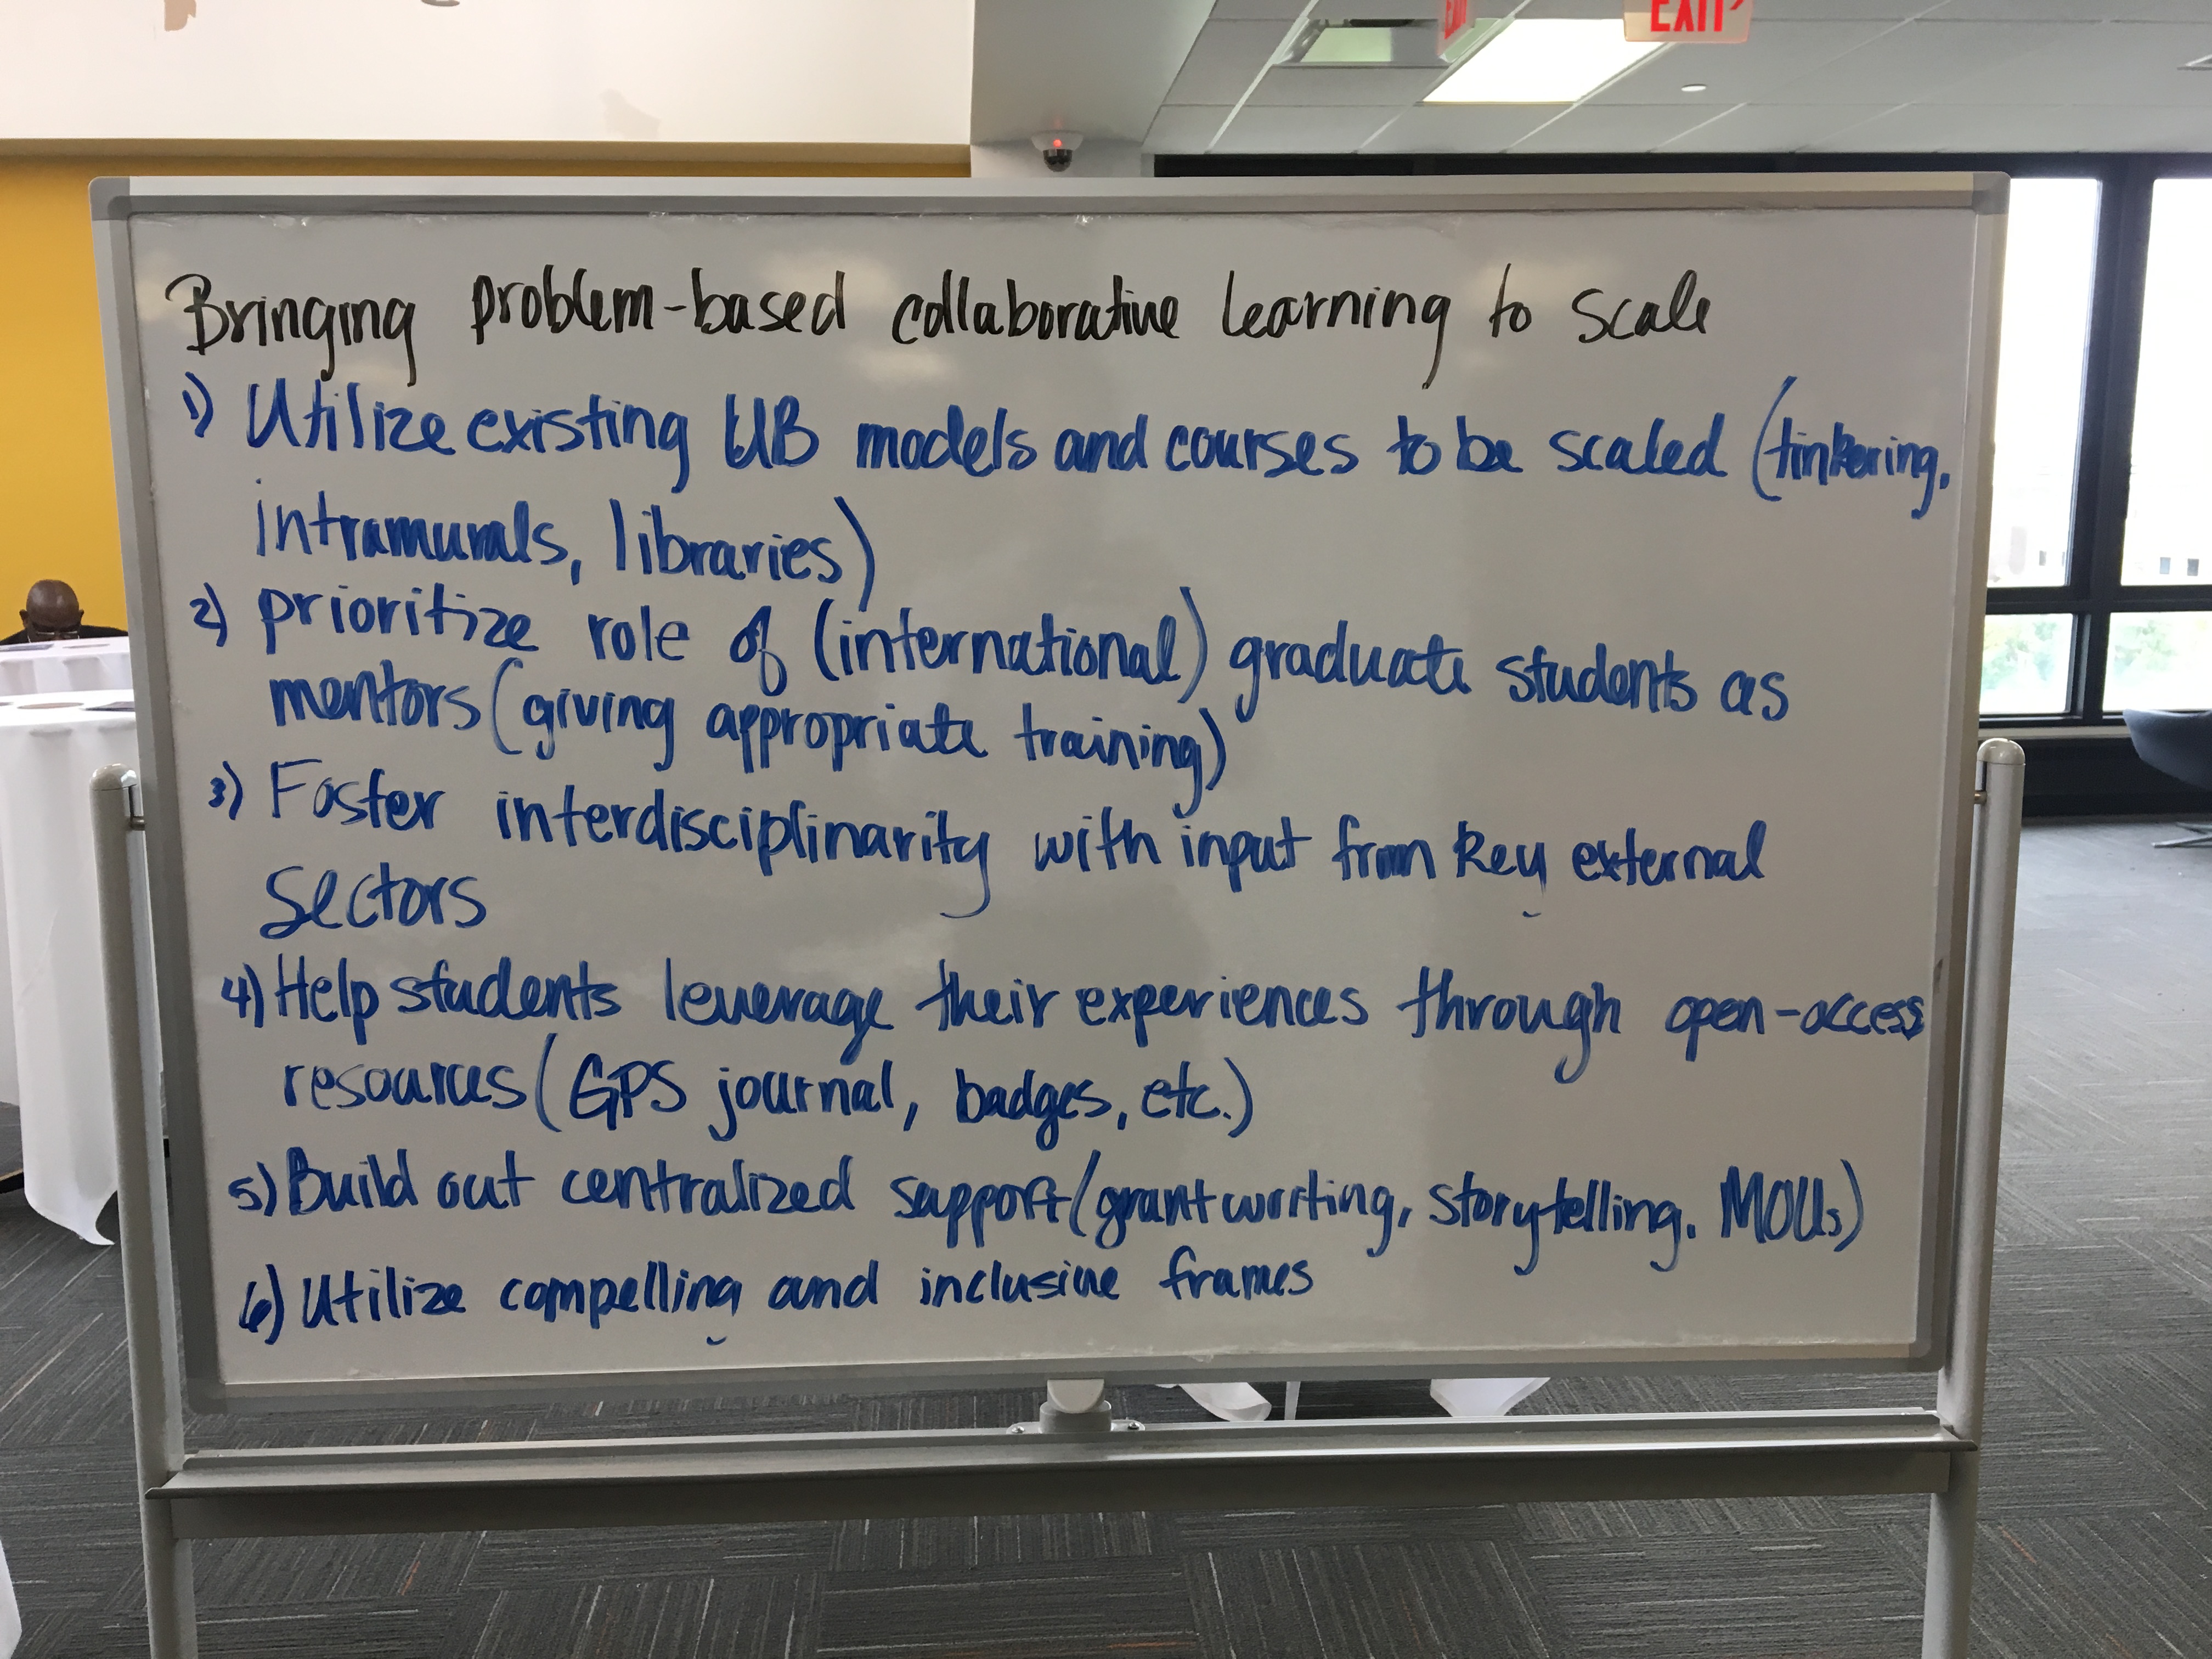 EXIT
EXIT
Bringing problem-based collaborative learning to scale
1) Utilize existing UB models and courses to be scaled (tinkering,
intramurals, libraries)
2) prioritize role of (international) graduate students as
mentors (giving appropriate training)
3) Foster interdisciplinarity with input from key external
sectors
4) Help students leverage their experiences through open-access
resources (GPS journal, badges, etc.)
5) Build out centralized support (grantwriting, storytelling, MOUs)
6) Utilize compelling and inclusive frames